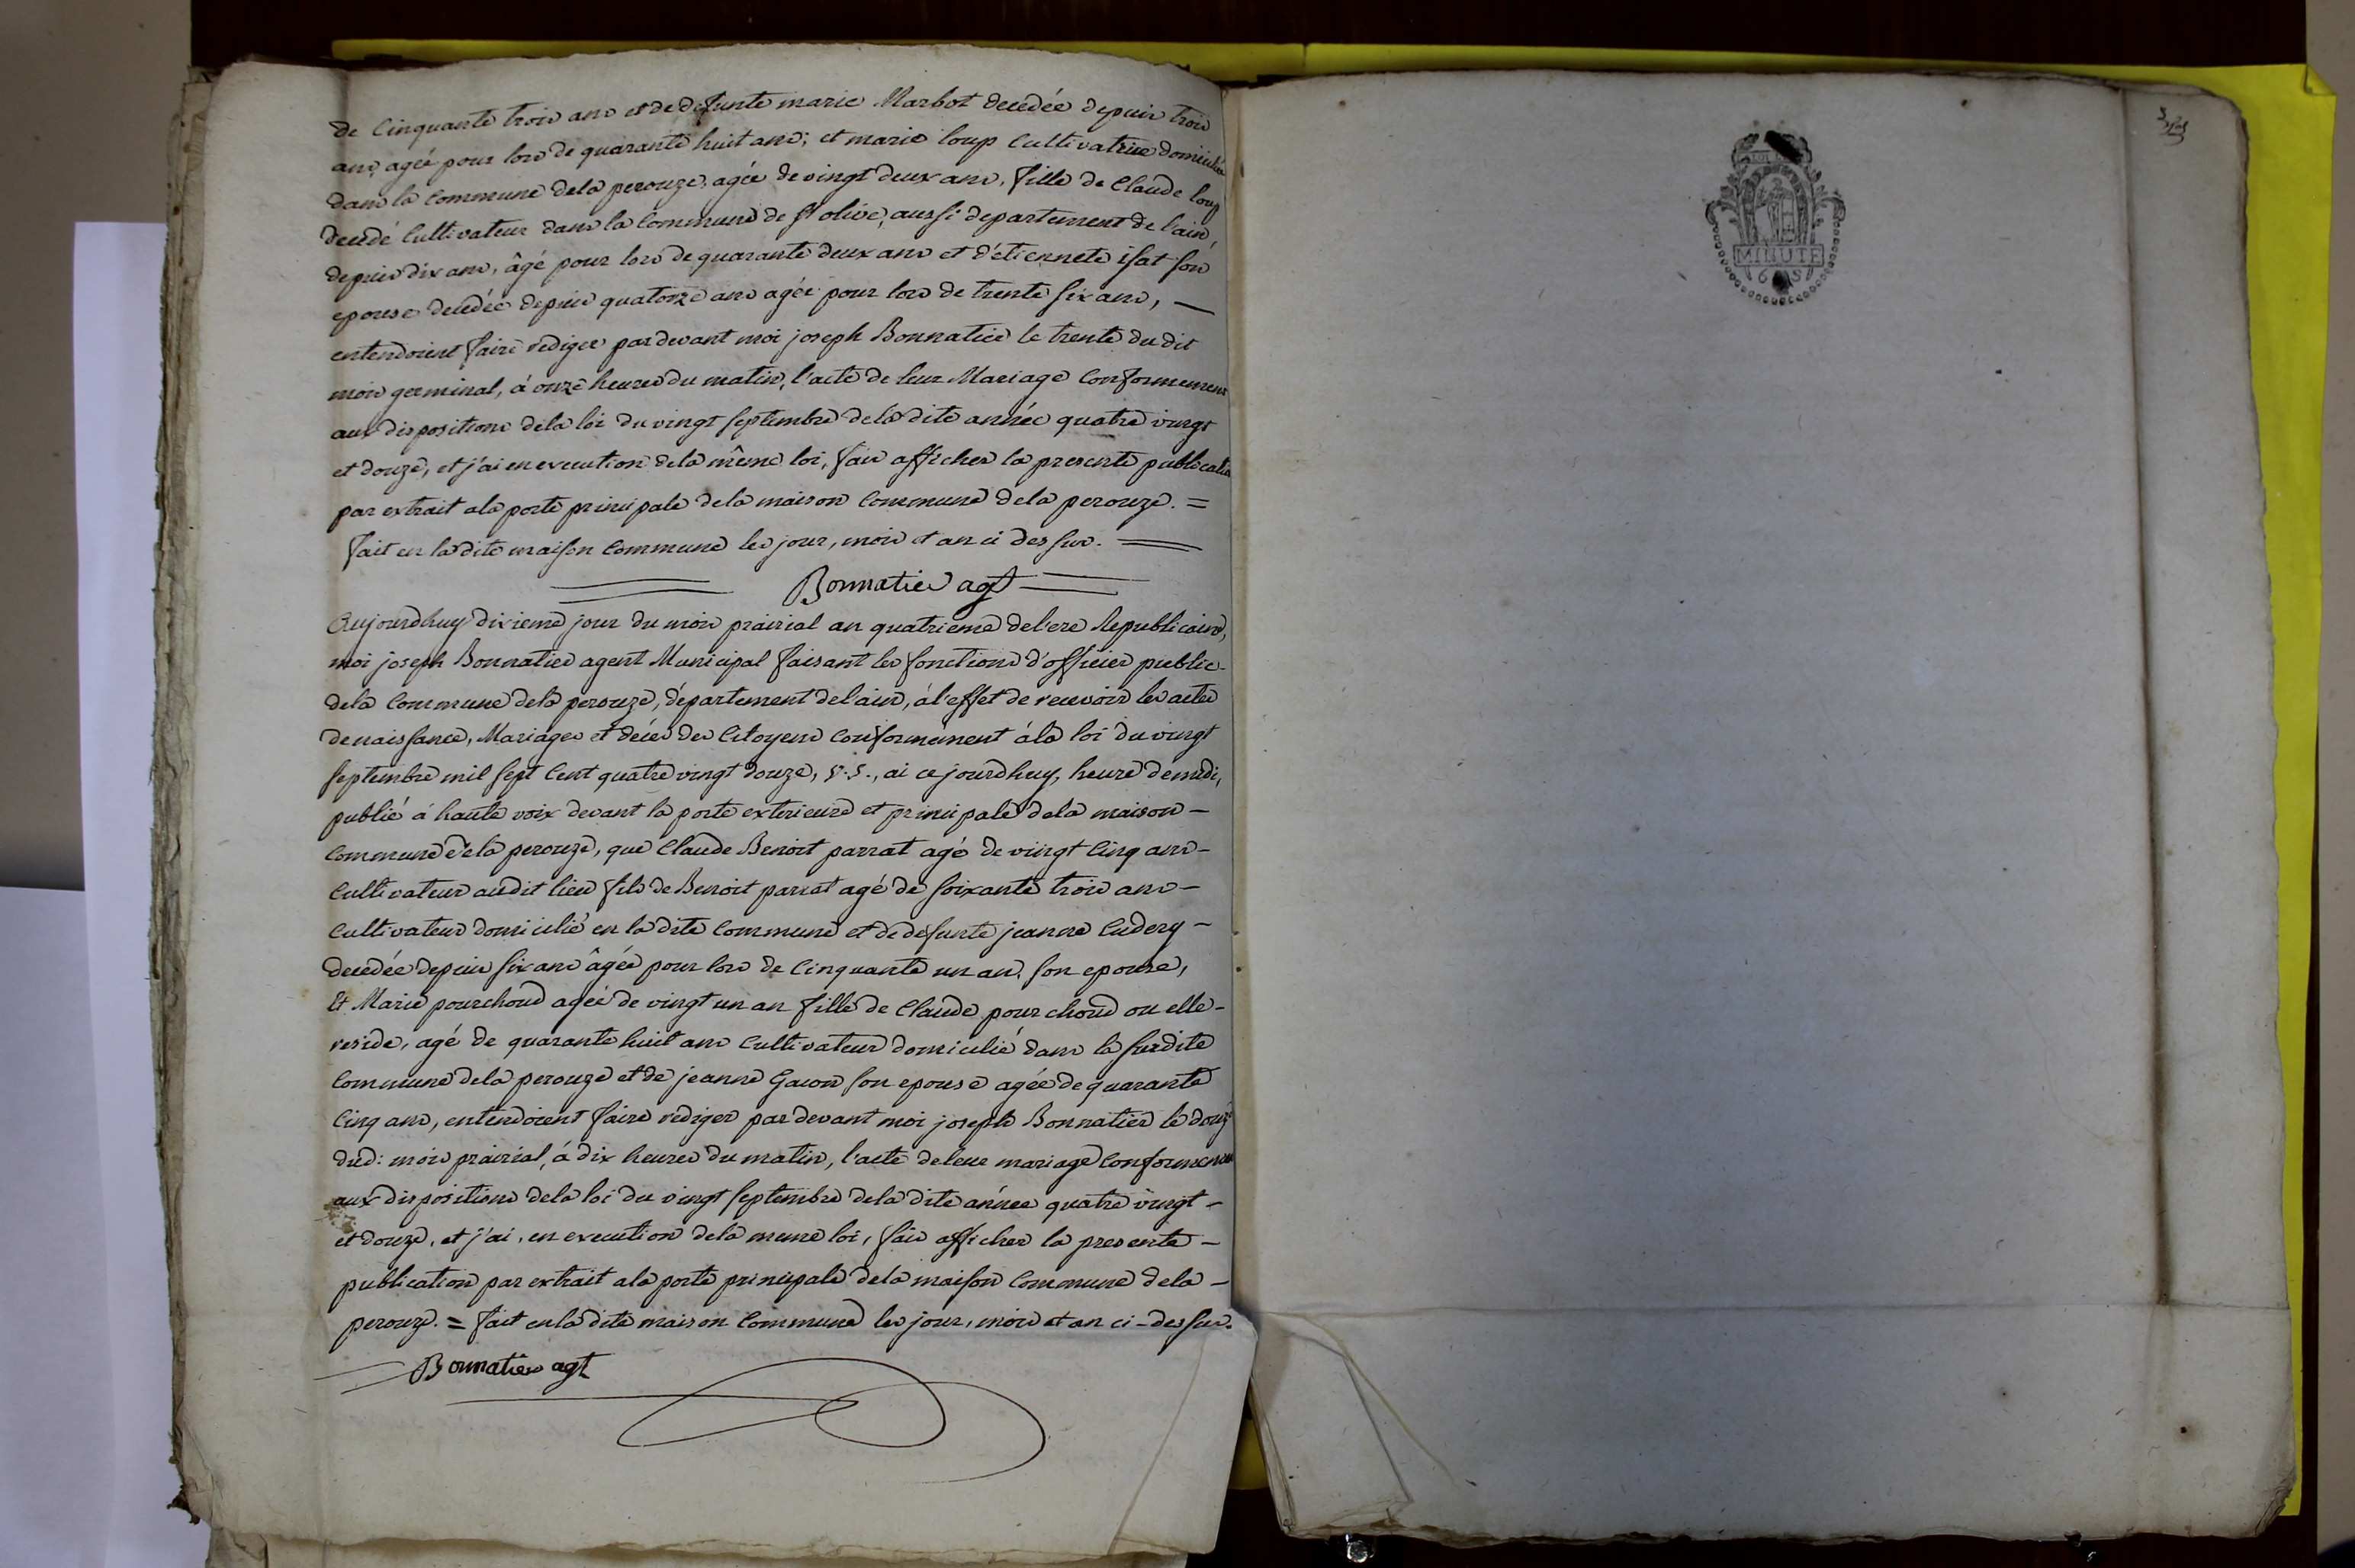 de Cinquante trois ans et de defunte marie Marbot decedée depuis trois
ans, agée pour lors de quarante huit ans; et marie loup Cultivatrice domiciliée
dans la Commune de la perouze, agée de vingt deux ans, fille de Claude loup
decedé Cultivateur dans la Commune de st olive, aussi departement de l'ain,
depuis dix ans, âgé pour lors de quarante deux ans et d'étiennete isat son
epouse decedée depuis quatorze ans agée pour lors de trente six ans, —
entendoient faire rediger pardevant moi joseph Bonnatier le trente du dit
mois germinal, à onze heures du matin, l'acte de leur Mariage Conformement
aux dispositions de la loi du vingt septembre de la dite année quatre vingt
et douze, et j'ai en execution de la même loi, fais afficher la presente publication
par extrait a la porte principale de la maison Commune de la perouze. =
fait en la dite maison Commune les jour, mois et an ci dessus. =
Bonnatier agt
Aujourdhuy dixieme jour du mois prairial an quatrieme de l'ere Republicaine,
moi joseph Bonnatier agent Municipal faisant les fonctions d'officier public
de la Commune de la perouze, département de l'ain, à l'effet de recevoir les actes
de naissance, Mariages et décès des Citoyens Conformément à la loi du vingt
septembre mil sept Cent quatre vingt douze, v.s., ai ce jourdhuy, heure de midi,
publié à haute voix devant la porte exterieure et principale de la maison —
Commune de la perouze, que Claude Benoit parrat agé de vingt Cinq ans —
Cultivateur audit lieu fils de Benoit parrat agé de soixante trois ans —
Cultivateur domicilié en la dite Commune et de defunte jeanne Cudery —
decedée depuis six ans âgée pour lors de Cinquante un an, son epouse,
Et Marie pourchoud agée de vingt un an fille de Claude pourchoud ou elle —
reside, agé de quarante huit ans Cultivateur domicilié dans la susdite
Commune de la perouze et de jeanne Gacon son epouse agée de quarante
Cinq ans, entendoient faire rediger par devant moi joseph Bonnatier le douze
dud: mois prairial, à dix heures du matin, l'acte de leur mariage Conformement
aux dispositions de la loi du vingt septembre de la dite année quatre vingt —
et douze, et j'ai, en execution de la meme loi, fais afficher la presente —
publication par extrait a la porte principale de la maison Commune de la —
perouze. = fait en la dite maison Commune les jour, mois et an ci-dessus.
Bonnatier agt
MINUTE